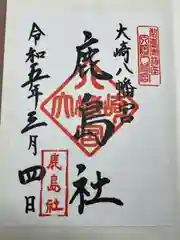 大崎八幡宮
鹿島社
令和五年三月四日
鹿島社